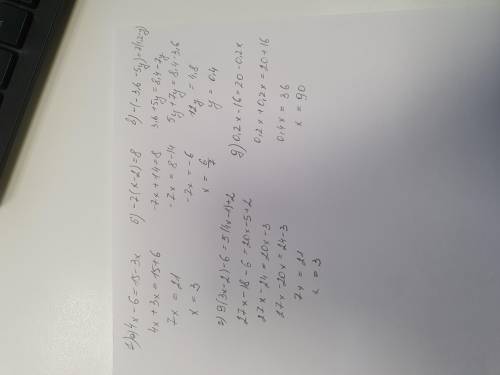 а) 4x - 6 = 15 - 3x
4x + 3x = 15 + 6
7x = 21
x = 3
б) -7(x-2) = 8
-7x + 14 = 8
-7x = 8 - 14
-7x = -6
x = 6/7
в) -(-3,6 - 5y) = 7(1,2 - y)
3,6 + 5y = 8,4 - 7y
5y + 7y = 8,4 - 3,6
12y = 4,8
y = 0,4
г) 9(3x - 2) - 6 = 5(4x - 1) + 2
27x - 18 - 6 = 20x - 5 + 2
27x - 24 = 20x - 3
27x - 20x = 24 - 3
7x = 21
x = 3
д) 0,2x - 16 = 20 - 0,2x
0,2x + 0,2x = 20 + 16
0,4x = 36
x = 90